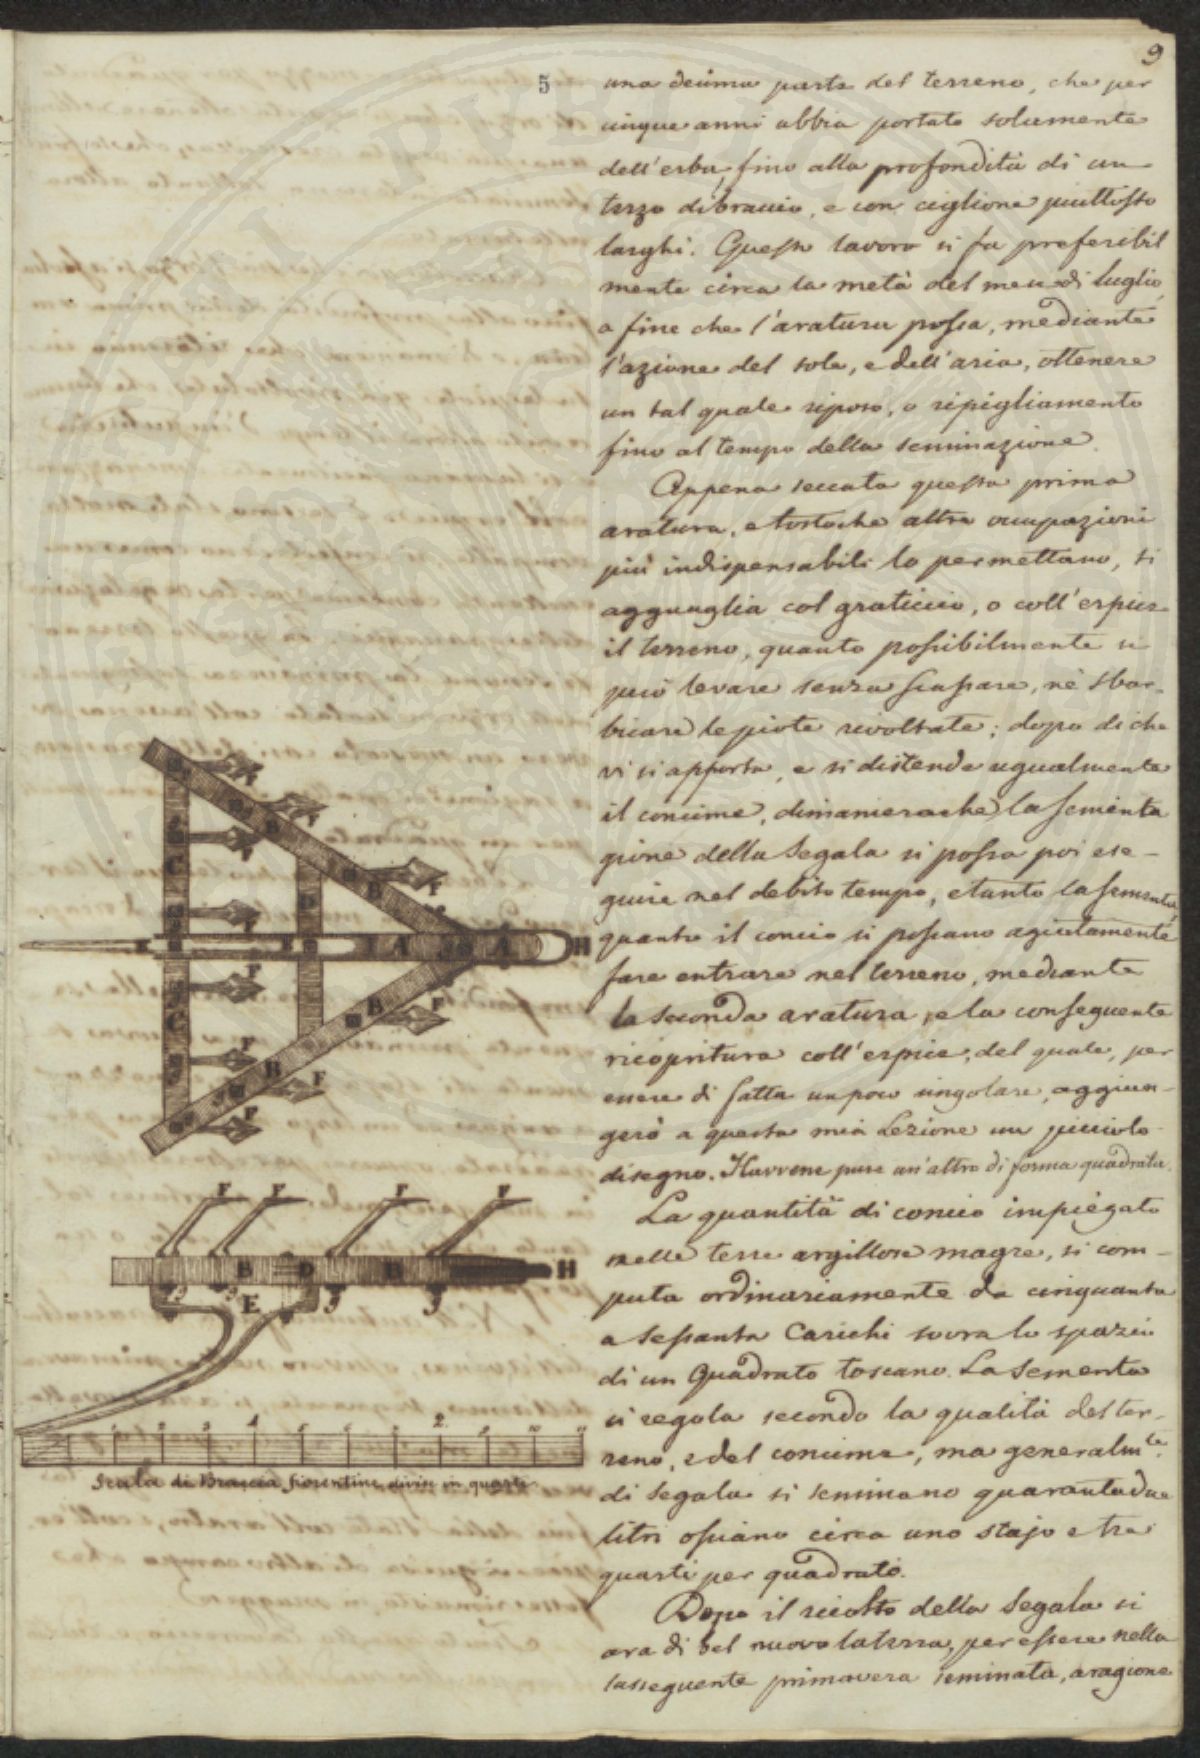 9
5
una decima parte del terreno, che per
cinque anni abbia portato solamente
dell'erba, fino alla profondità di un
terzo di braccio, e con ciglione piuttosto
larghi. Questo lavoro si fa preferibil
mente circa la metà del mese di luglio,
a fine che l'aratura possa, mediante
l'azione del sole, e dell'aria, ottenere
un tal quale riposo, o ripigliamento
fino al tempo della seminazione.
Appena seccata questa prima
aratura, e tostoche altre occupazioni
più indispensabili lo permettano, si
agguaglia col graticcio, o coll'erpice
il terreno, quanto possibilmente si
può levare senza scassare, nè sbar-
bicare le piote rivoltate; dopo di che
vi si apporta, e si distende ugualmente
il concime, dimanierache la sementa
gione della Segala si possa poi ese-
guire nel debito tempo, e tanto la sementa,
quanto il concio si possano agiatamente
fare entrare nel terreno, mediante
la seconda aratura, e la conseguente
ricopritura coll'erpice, del quale, per
essere di fatta un poco singolare, aggiun-
gerò a questa mia Lezione un picciolo
disegno. Havvene pure un'altro di forma quadrata.
La quantità di concio impiegato
nelle terre argillose magre, si com-
puta ordinariamente da cinquanta
a sessanta Carichi sovra lo spazio
di un Quadrato toscano. La Sementa
si regola secondo la qualità del ter-
reno, e del concime; ma generalm.te
di Segala si seminano quarantadue
litri ossiano circa uno stajo e tre
quarti per quadrato.
Dopo il ricolto della Segala si
ara di bel nuovo la terra, per essere nella
susseguente primavera seminata, a ragione
F
F
B
F
C
B
F
F
D
F
E
E
A
A
H
F
B
F
C
F
B
F
F
F
F
F
F
B
D
B
H
E
2
Scala di Braccia fiorentine divise in quarti